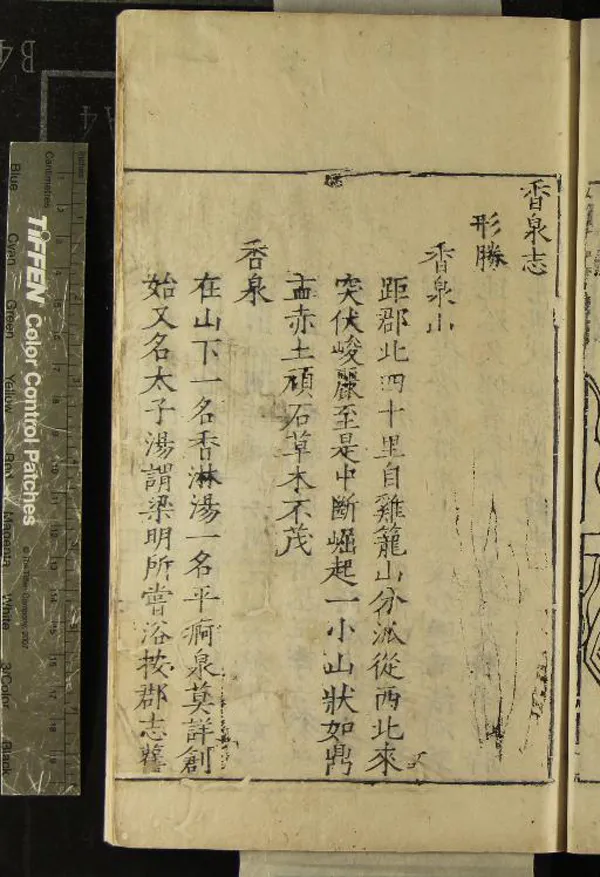 香泉志
形勝
香泉山
距郡北四十里自雞籠山分派從西北來
突伏峻麗至是中斷崛起一小山狀如鼎
盂赤土頑石草木不茂
香泉
在山下一名香淋湯一名平痾泉莫詳創
始又名太子湯謂梁明所嘗浴按郡志舊
TIFFEN Color Control Patches
© The Tiffen Company, 2007
Centimetres
Inches
Blue
Cyan
Green
Yellow
Red
Magenta
White
3/Color
Black
B4
A4